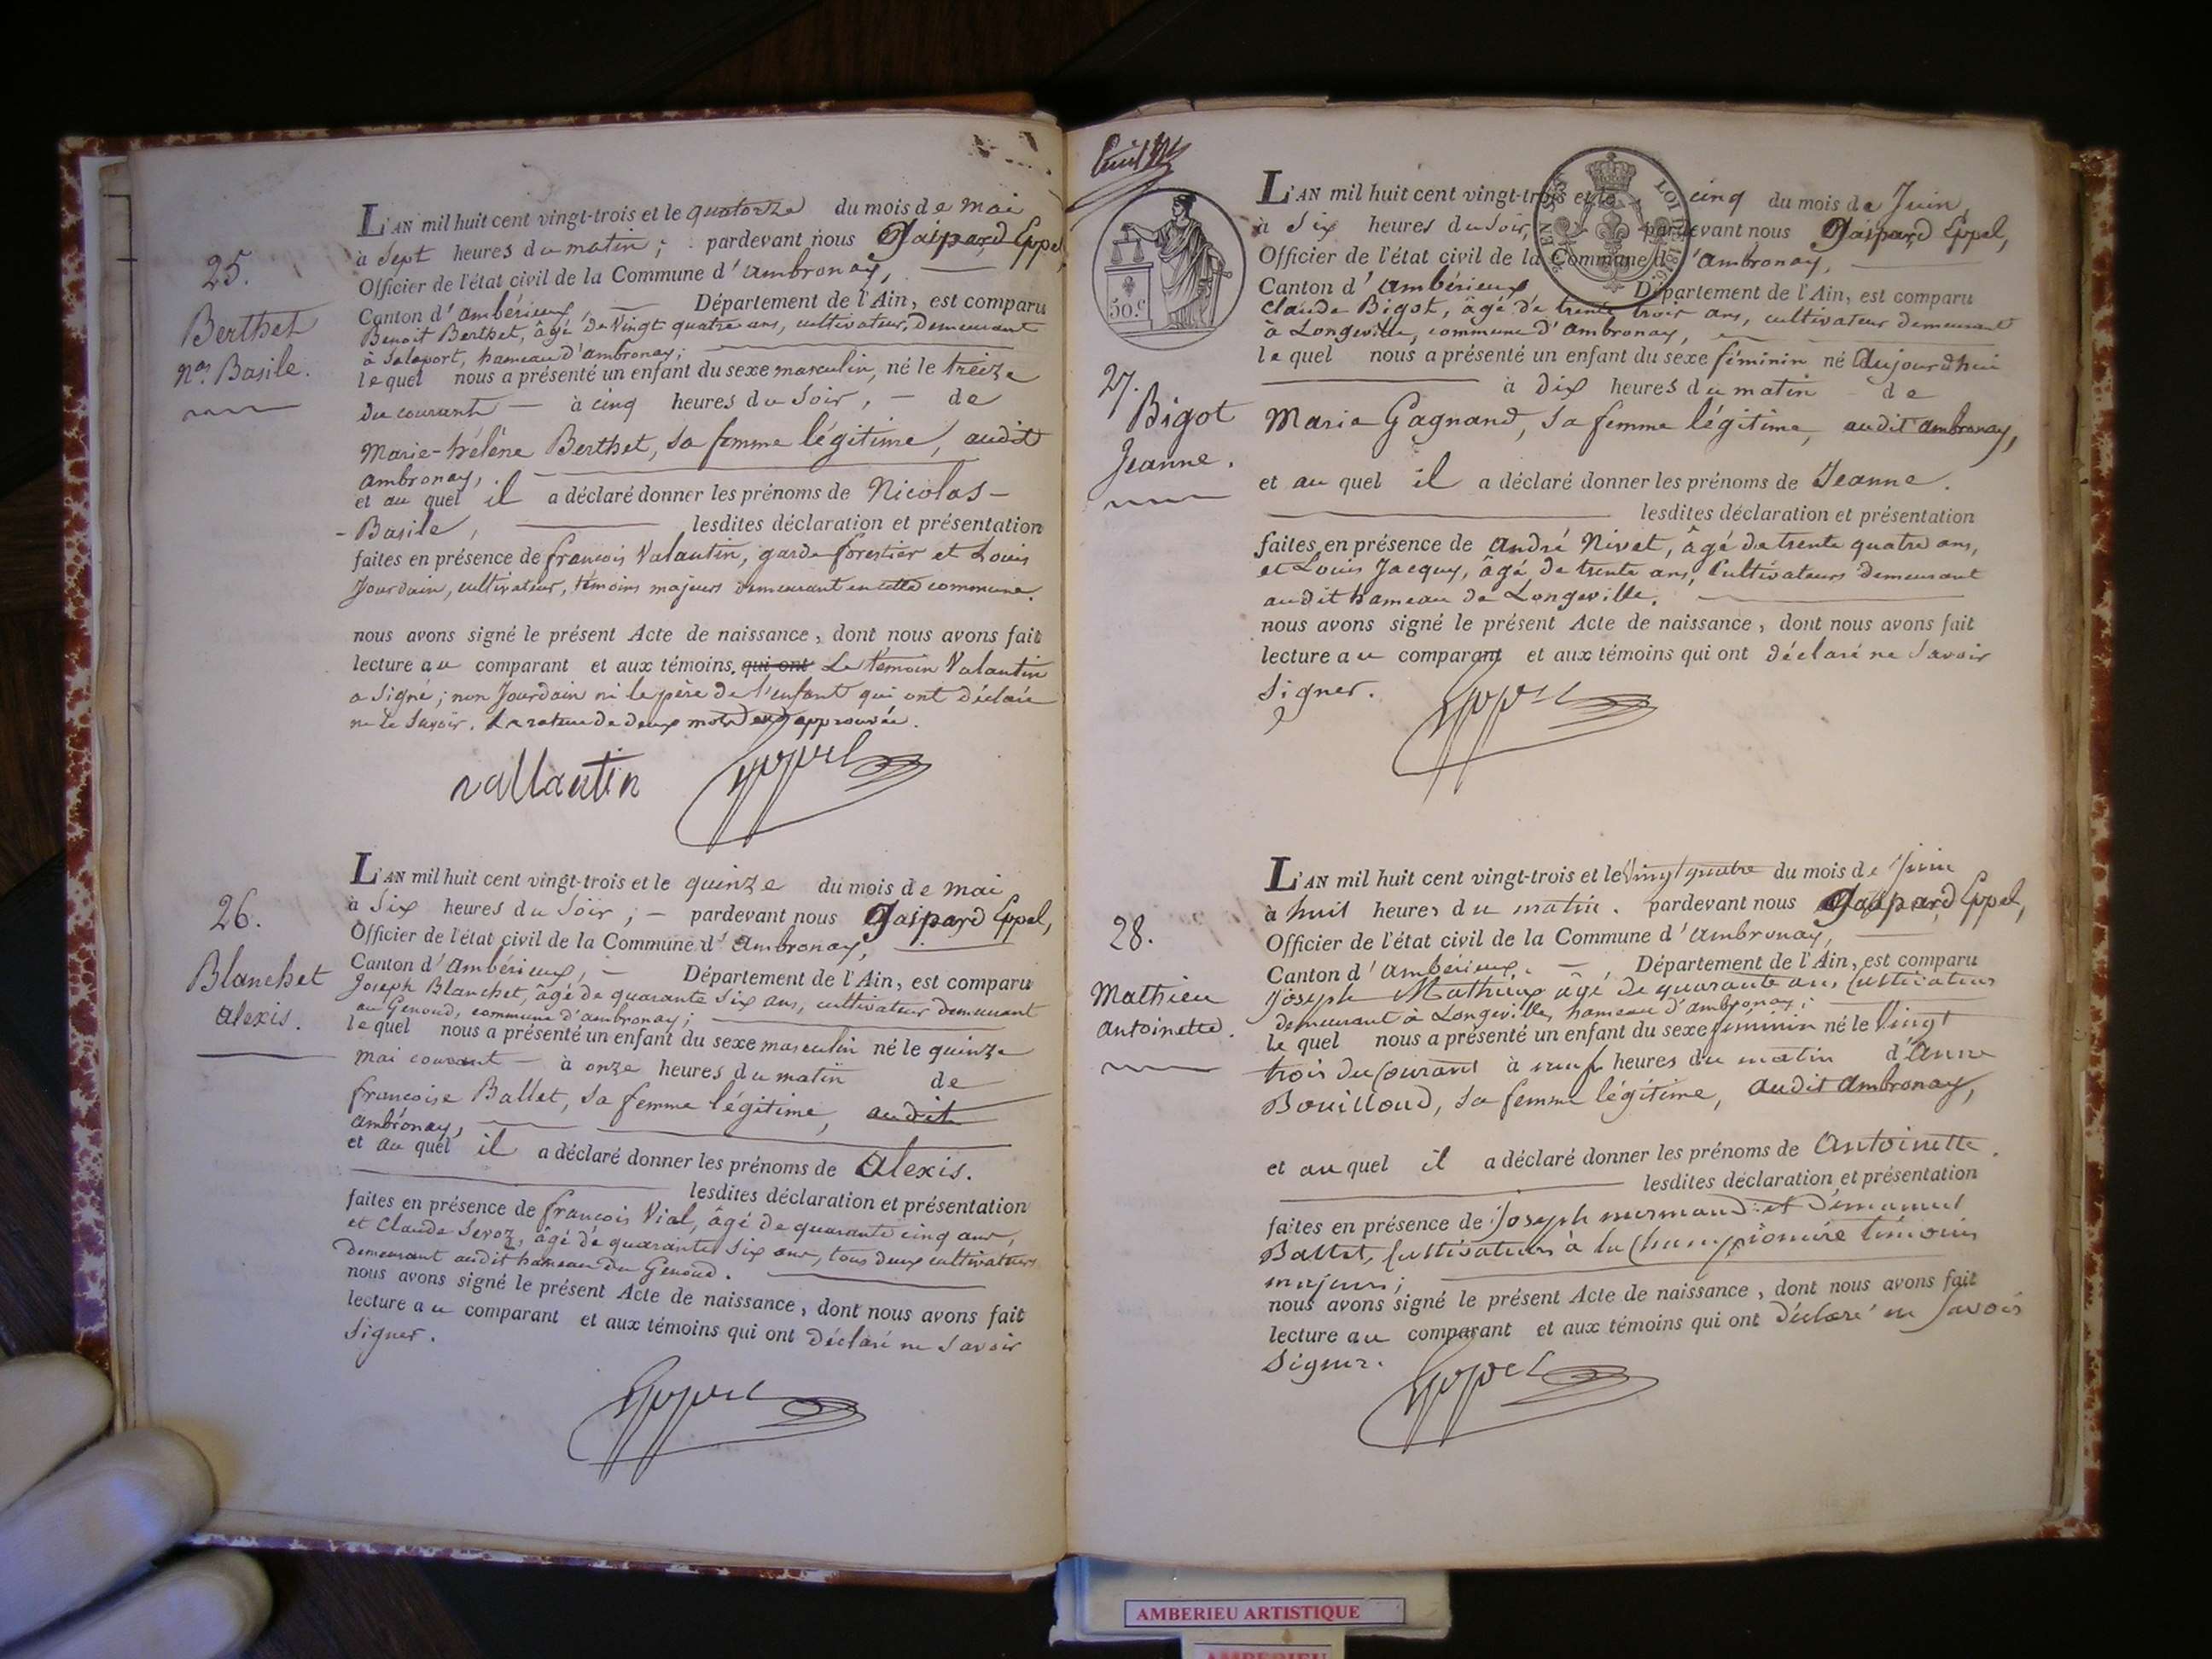 25.
Berthet
nas Basile.
L'AN mil huit cent vingt-trois et le quatorze du mois de mai
à Sept heures du matin ; pardevant nous Gaspard Eppel,
Officier de l'état civil de la Commune d'ambronay,
Canton d'ambérieux, Département de l'Ain, est comparu
Benoit Berthet, âgé de vingt quatre ans, cultivateur, demeurant
à Salaport, hameau d'ambronay;
lequel nous a présenté un enfant du sexe masculin, né le treize
du courant à cinq heures du Soir, de
Marie-hélène Berthet, sa femme légitime, audit
ambronay,
et au quel il a déclaré donner les prénoms de Nicolas-
-Basile, lesdites déclaration et présentation
faites en présence de françois Valautin, garde forestier et Louis
Jourdain, cultivateur, témoins majeurs demeurant en cette commune.
nous avons signé le présent Acte de naissance, dont nous avons fait
lecture au comparant et aux témoins. qui ont Le témoin Valautin
a signé; non Jourdain ni le père de l'enfant qui ont déclaré
ne le savoir. La rature de deux mots est approuvée.
vallautin Eppel
26.
Blanchet
alexis.
L'AN mil huit cent vingt-trois et le quinze du mois de mai
à Six heures du Soir ; pardevant nous Gaspard Eppel,
Officier de l'état civil de la Commune d'ambronay,
Canton d'ambérieux, Département de l'Ain, est comparu
Joseph Blanchet, âgé de quarante six ans, cultivateur demeurant
au Genoud, commune d'ambronay;
lequel nous a présenté un enfant du sexe masculin né le quinze
mai courant à onze heures du matin de
françoise Ballet, sa femme légitime, audit
ambronay,
et au quel il a déclaré donner les prénoms de Alexis.
lesdites déclaration et présentation
faites en présence de françois Vial, âgé de quarante cinq ans,
et Claude Servoz, âgé de quarante six ans, tous deux cultivateurs
demeurant audit hameau du Genoud.
nous avons signé le présent Acte de naissance, dont nous avons fait
lecture au comparant et aux témoins qui ont déclaré ne savoir
signer.
Eppel
50.c
LOI DE 1816.
27.
Bigot
Jeanne.
L'AN mil huit cent vingt-trois et le cinq du mois de Juin,
à Six heures du Soir, pardevant nous Gaspard Eppel,
Officier de l'état civil de la Commune d'ambronay,
Canton d'ambérieux Département de l'Ain, est comparu
Claude Bigot, âgé de trente trois ans, cultivateur demeurant
à Longeville, commune d'ambronay,
lequel nous a présenté un enfant du sexe féminin né Aujourd'hui
à dix heures du matin de
Marie Gagnand, sa femme légitime, audit ambronay,
et au quel il a déclaré donner les prénoms de Jeanne.
lesdites déclaration et présentation
faites en présence de André Nivet, âgé de trente quatre ans,
et Louis Jacquy, âgé de trente ans, Cultivateurs demeurant
audit hameau de Longeville.
nous avons signé le présent Acte de naissance, dont nous avons fait
lecture au comparant et aux témoins qui ont déclaré ne savoir
signer.
Eppel
28.
Mathieu
antoinette.
L'AN mil huit cent vingt-trois et le Vingt quatre du mois de Juin
à huit heures du matin. pardevant nous Gaspard Eppel,
Officier de l'état civil de la Commune d'ambronay,
Canton d'ambérieux. Département de l'Ain, est comparu
Joseph Mathieu âgé de quarante ans, Cultivateur
demeurant à Longeville, hameau d'ambronay;
Le quel nous a présenté un enfant du sexe féminin né le Vingt
trois du Courant à neuf heures du matin d'Anne
Bouilloud, sa femme légitime, audit ambronay,
et au quel il a déclaré donner les prénoms de Antoinette.
lesdites déclaration et présentation
faites en présence de Joseph mermand et Démanuel
Ballet, Cultivateurs à la Championnière témoins
majeurs;
nous avons signé le présent Acte de naissance, dont nous avons fait
lecture au comparant et aux témoins qui ont déclaré ne savoir
signer.
Eppel
AMBERIEU ARTISTIQUE
AMBERIEU